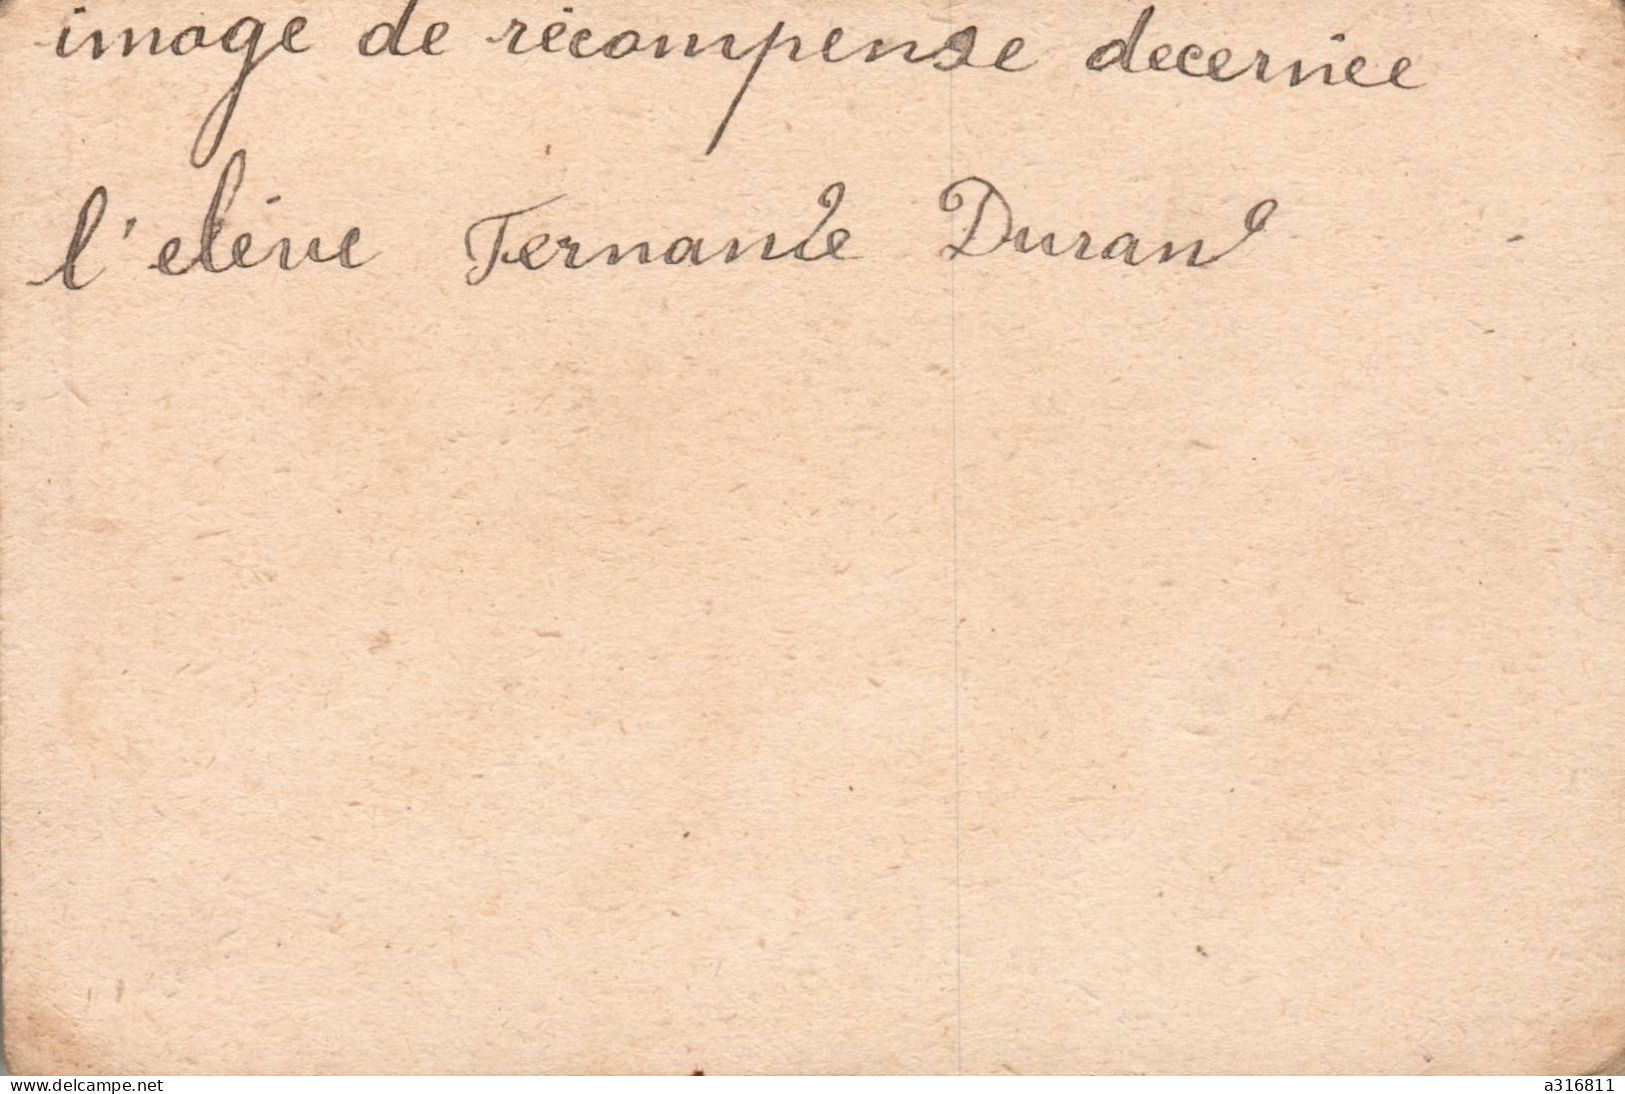 image de récompense decernée
l'elève Fernande Durand
www.delcampe.net
a316811